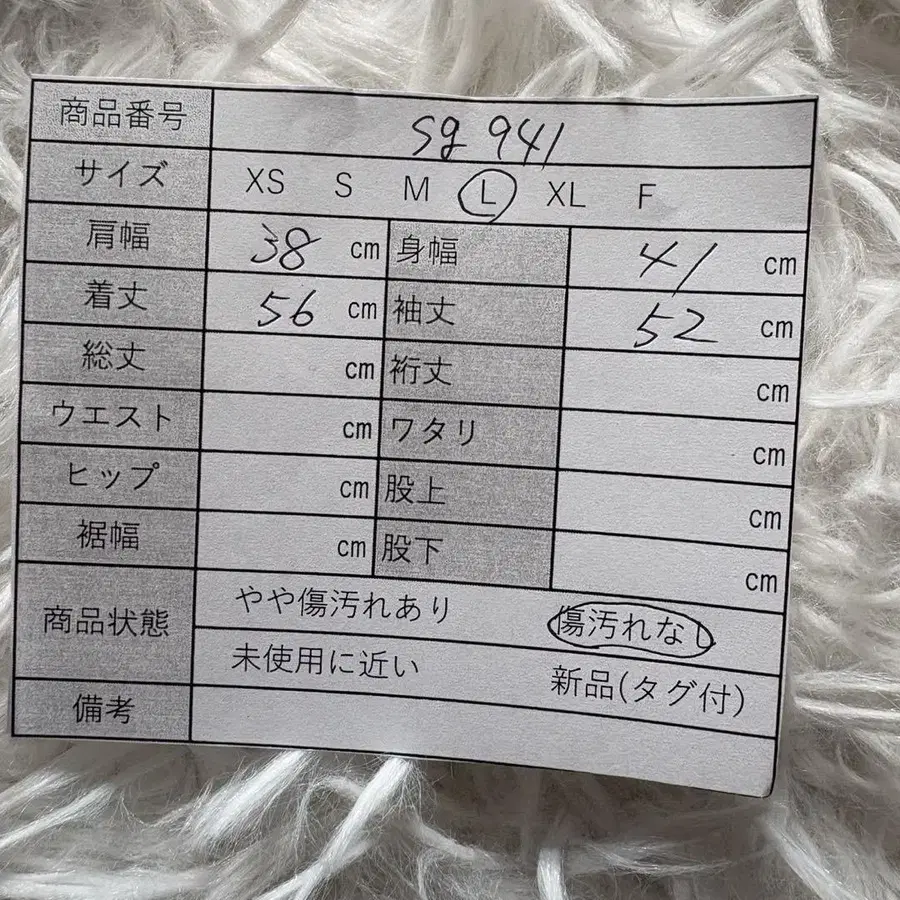 商品番号 sg 941
サイズ XS S M L XL F
肩幅 38 cm 身幅 41 cm
着丈 56 cm 袖丈 52 cm
総丈 cm 裄丈 cm
ウエスト cm ワタリ cm
ヒップ cm 股上 cm
裾幅 cm 股下 cm
商品状態 やや傷汚れあり 傷汚れなし
未使用に近い 新品(タグ付)
備考